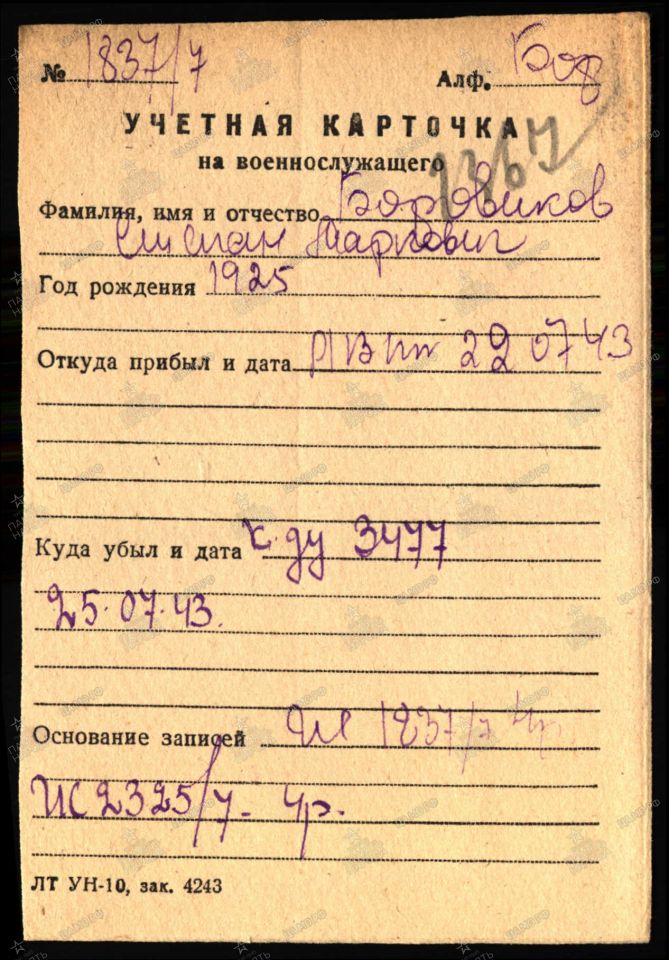 № 1837/7 Алф. Бов
УЧЕТНАЯ КАРТОЧКА
на военнослужащего
1367
Фамилия, имя и отчество Боровиков
Степан Маркович
Год рождения 1925
Откуда прибыл и дата РВ 22 07 43
Куда убыл и дата 3477
25.07.43.
Основание записей 1837/7
ИС 2325/7- чр.
ЛТ УН-10, зак. 4243